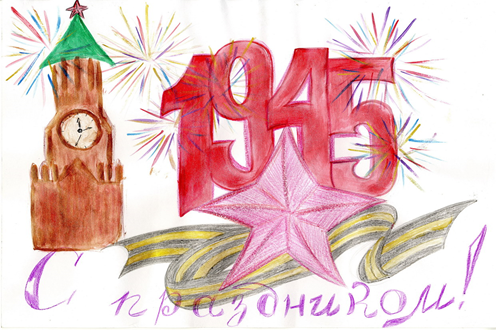 1945
С праздником!